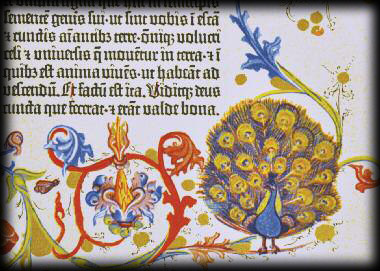 sementē genēis sui · ut sint vobis ī escā
⁊ cunctis aīantibꝫ terre · oīiqꝫ volucri
celi ⁊ universis q̄ movētur in terra · ⁊ ī
quibꝫ est anima vivēs · ut habeāt ad
vescendū. Et factū est ita. Viditqꝫ deus
cuncta que fecerat · ⁊ erāt valde bona.